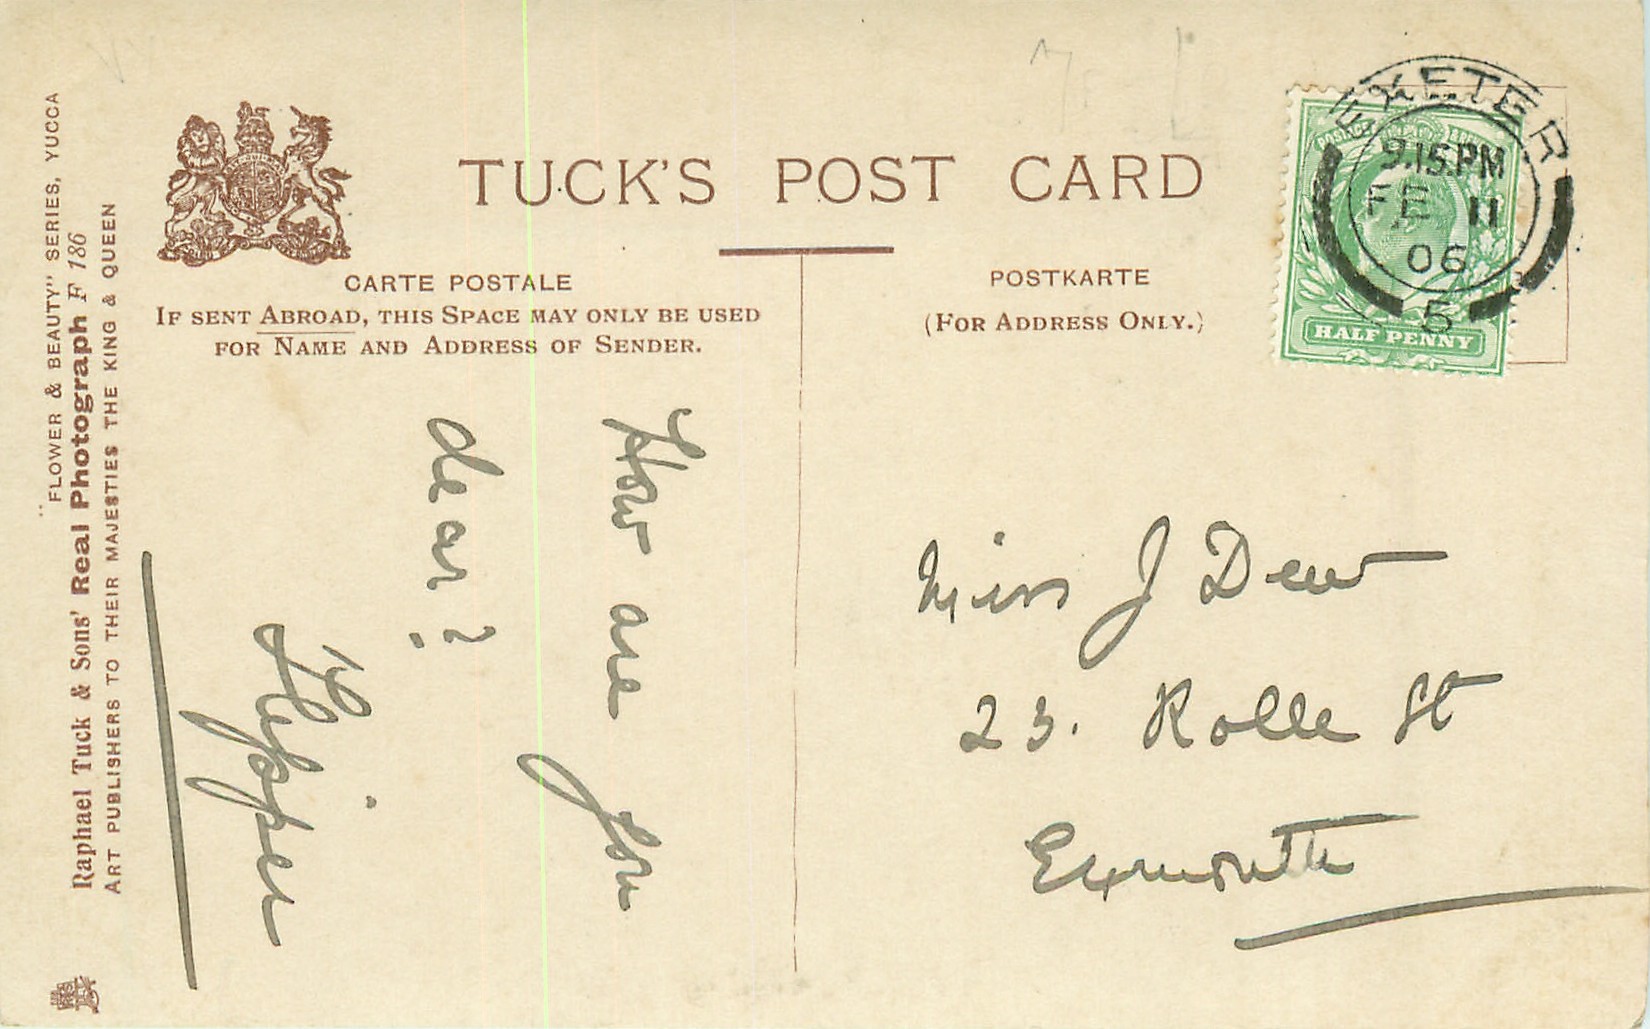 "FLOWER & BEAUTY" SERIES, YUCCA
Raphael Tuck & Sons' Real Photograph F 186
ART PUBLISHERS TO THEIR MAJESTIES THE KING & QUEEN
TUCK'S POST CARD
CARTE POSTALE
IF SENT ABROAD, THIS SPACE MAY ONLY BE USED
FOR NAME AND ADDRESS OF SENDER.
POSTKARTE
(FOR ADDRESS ONLY.)
EXETER
9.15.PM
FE 11
06
5
HALF PENNY
How are you
dear?
Miss J Dew
23. Rolle St
Exmouth